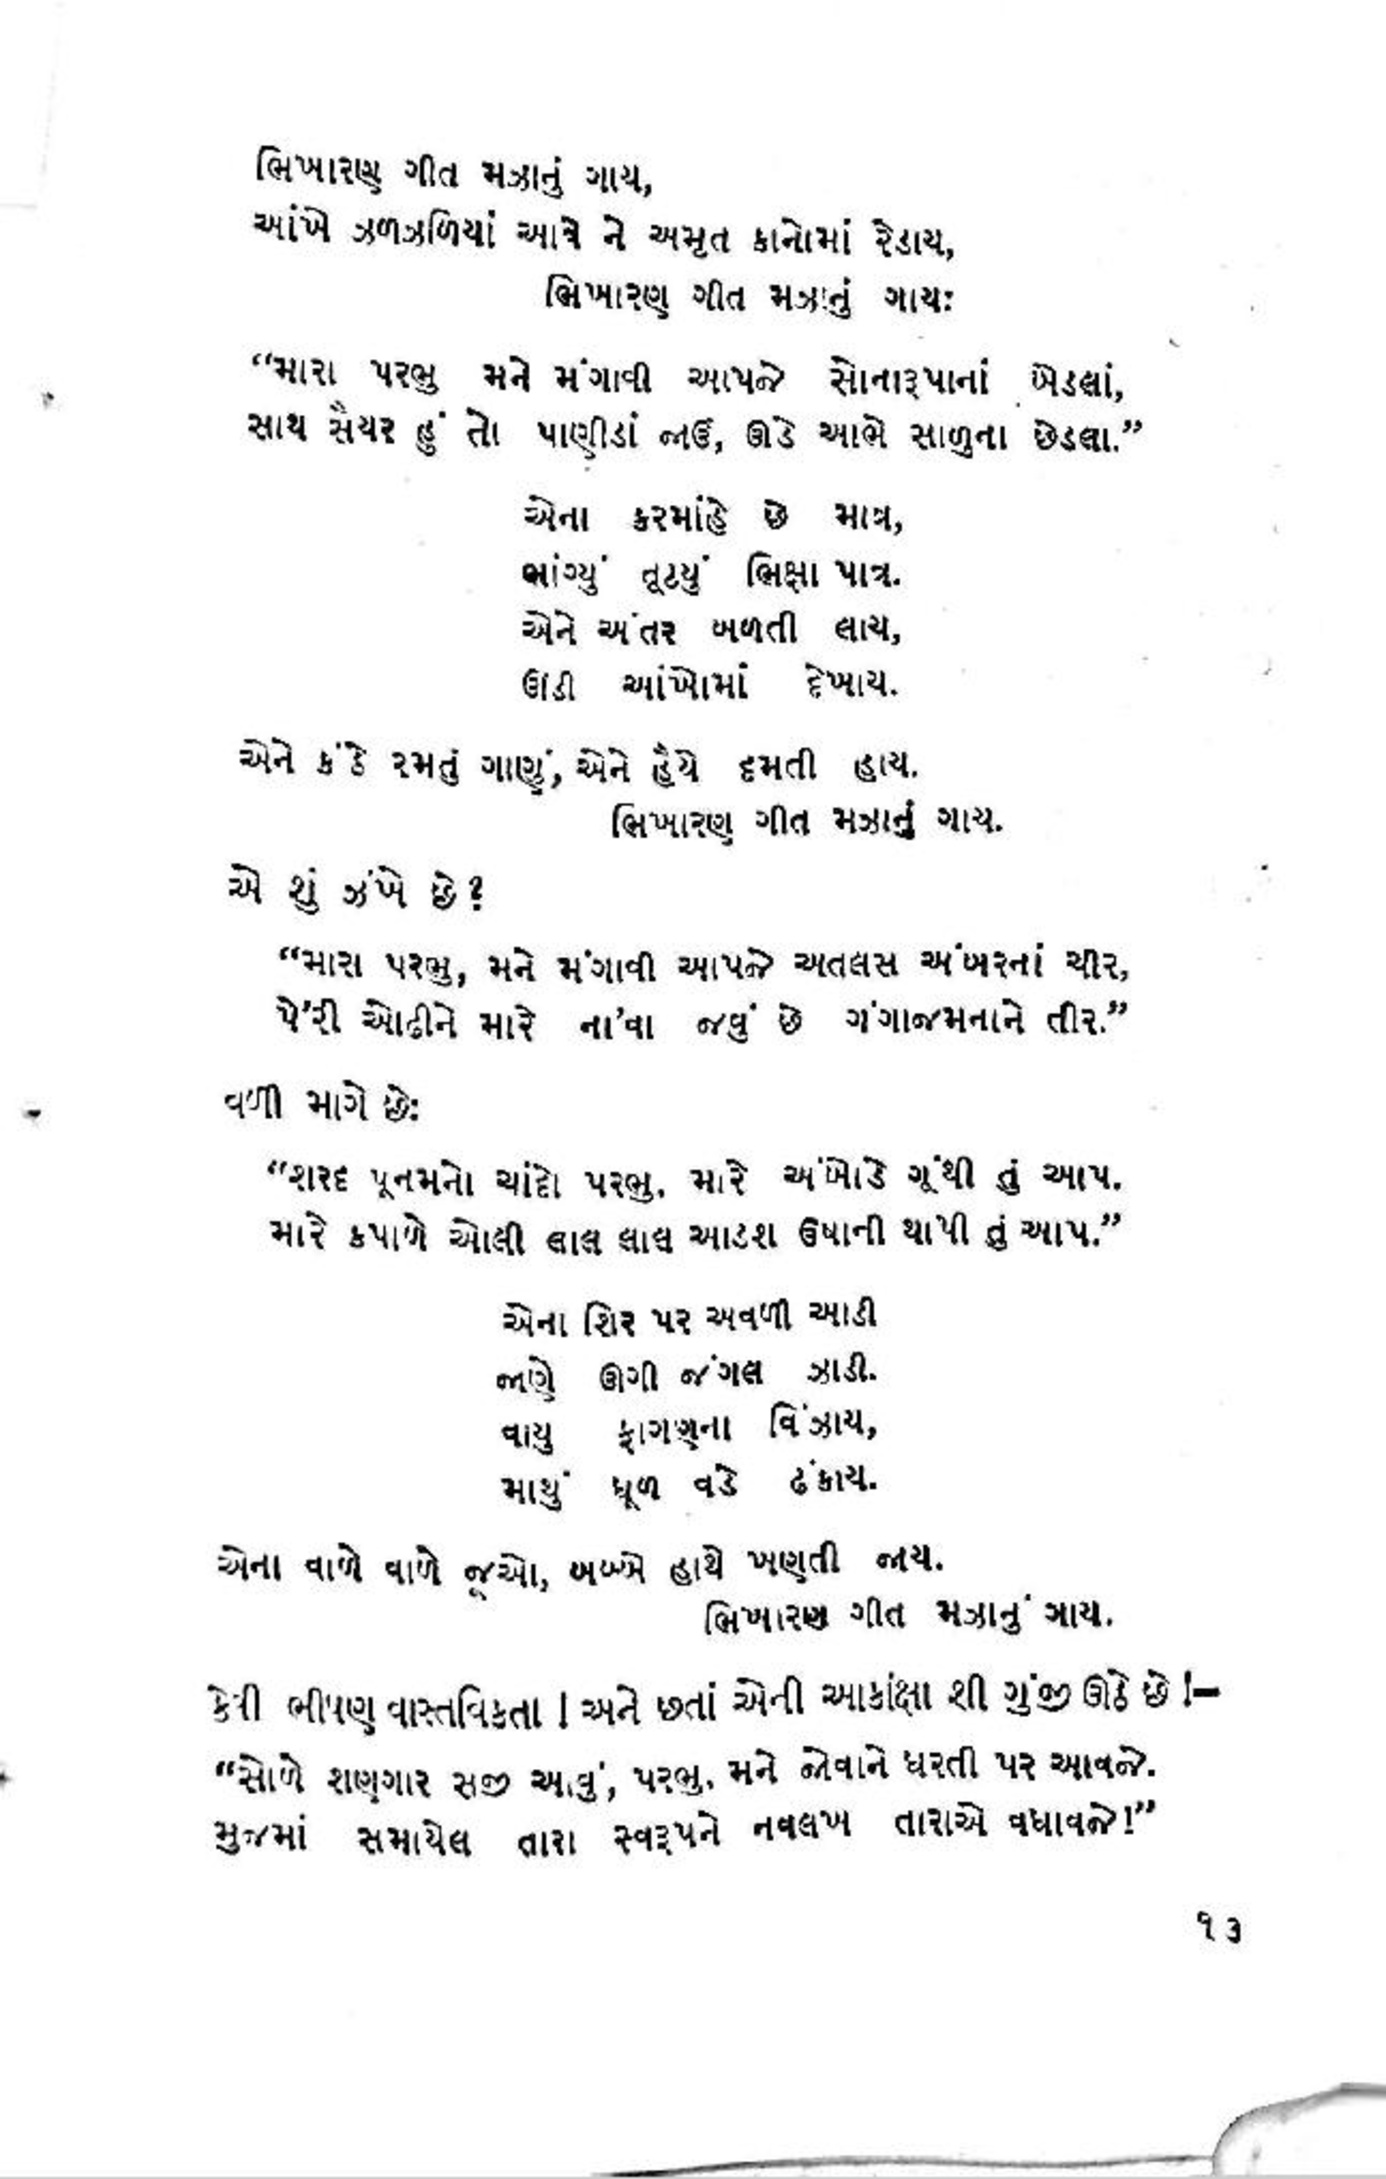 ભિખારણ ગીત મઝાનું ગાય,
આંખે ઝળઝળિયાં આવે ને અમૃત કાનોમાં રેડાય,
ભિખારણ ગીત મઝાનું ગાયઃ
“મારા પરભુ મને મંગાવી આપજે સોનારૂપાનાં બેડલાં,
સાથ સૈયર હું તો પાણીડાં જાઉં, ઊડે આભે સાળુના છેડલા.”
એના કરમાંહે છે માત્ર,
ભાંગ્યું તૂટયું ભિક્ષા પાત્ર.
એને અંતર બળતી લાય,
ઊંડી આંખોમાં દેખાય.
એને કંઠે રમતું ગાણું, એને હૈયે દમતી હાય.
ભિખારણ ગીત મઝાનું ગાય.
એ શું ઝંખે છે?
“મારા પરભુ, મને મંગાવી આપજે અતલસ અંબરનાં ચીર,
પે’રી ઓઢીને મારે ના’વા જવું છે ગંગાજમનાને તીર.”
વળી માગે છેઃ
“શરદ પૂનમનો ચાંદો પરભુ, મારે અંબોડે ગૂંથી તું આપ.
મારે કપાળે ઓલી લાલ લાલ આડશ ઉષાની થાપી તું આપ.”
એના શિર પર અવળી આડી
જાણે ઊગી જંગલ ઝાડી.
વાયુ ફાગણના વિંઝાય,
માથું ધૂળ વડે ઢંકાય.
એના વાળે વાળે જૂઓ, બબ્બે હાથે ખણતી જાય.
ભિખારણ ગીત મઝાનું ગાય.
કેવી ભીષણ વાસ્તવિકતા ! અને છતાં એની આકાંક્ષા શી ગુંજી ઊઠે છે !–
“સોળે શણગાર સજી આવું, પરભુ, મને જોવાને ધરતી પર આવજે.
મુજમાં સમાયેલ તારા સ્વરૂપને નવલખ તારાએ વધાવજે!”
૧૩